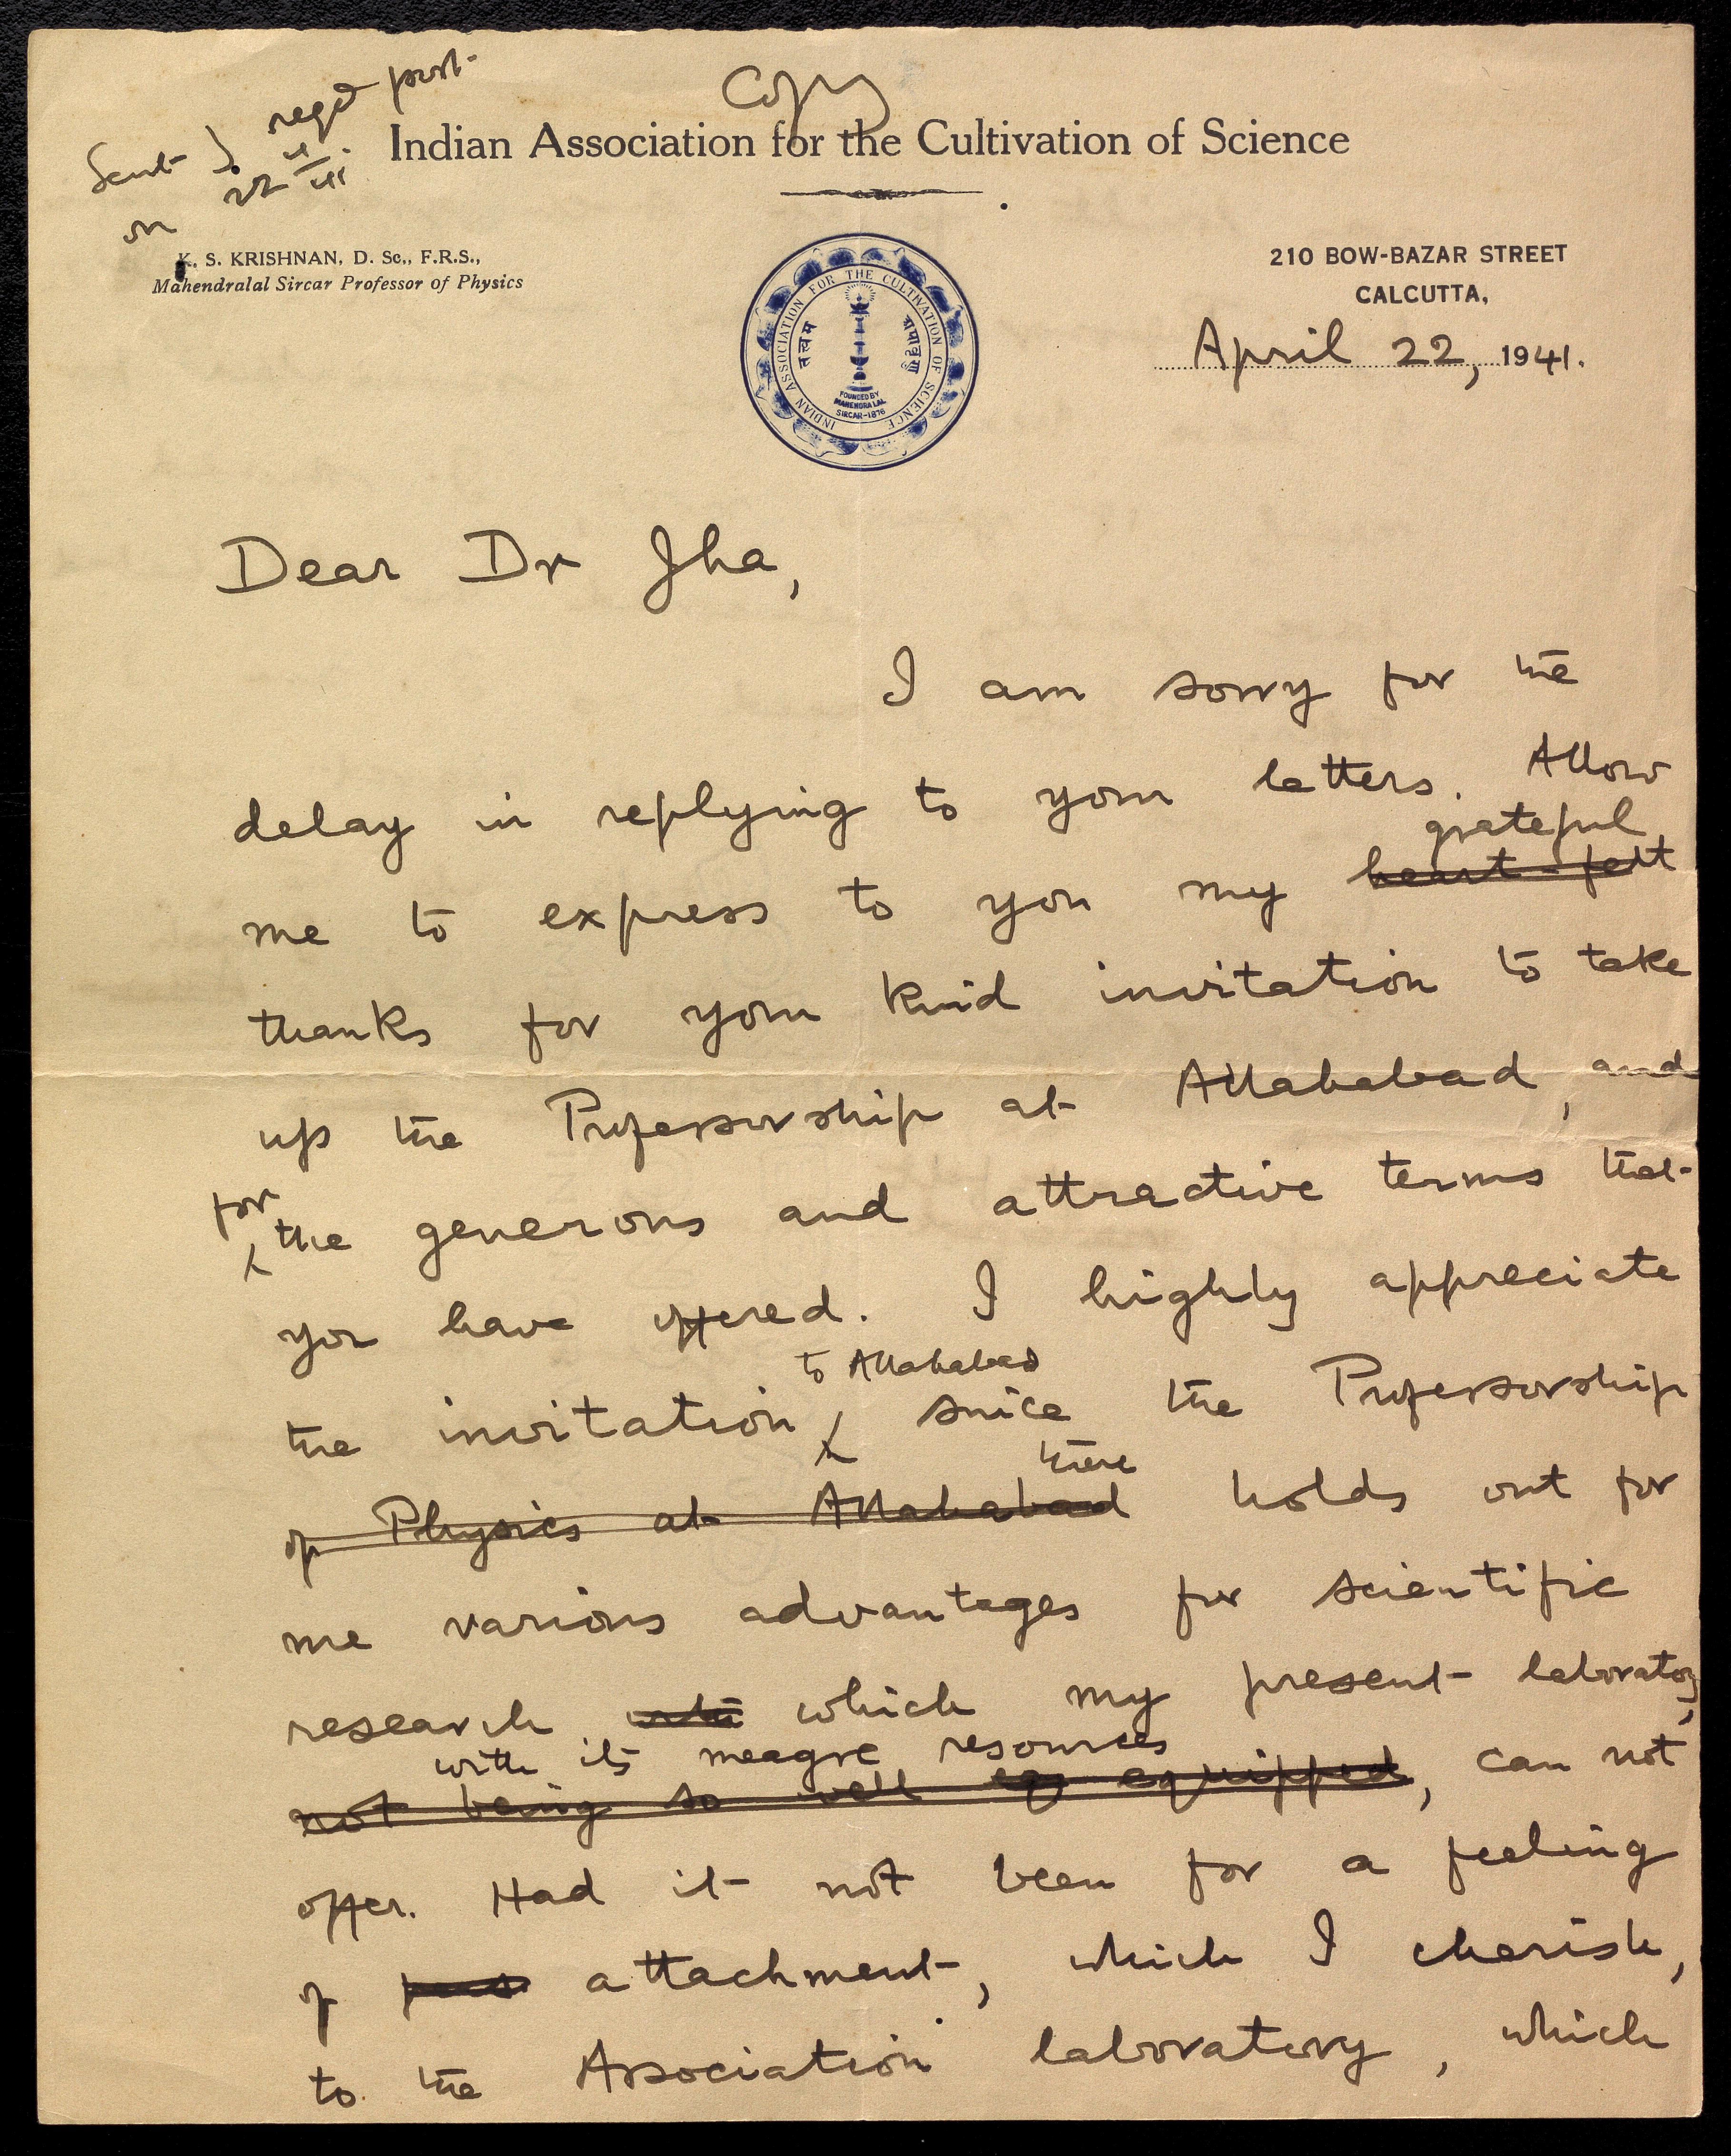 Copy
Sent by regd post
on 22
Indian Association for the Cultivation of Science
K. S. KRISHNAN, D. Sc., F.R.S.,
Mahendralal Sircar Professor of Physics
INDIAN ASSOCIATION FOR THE CULTIVATION OF SCIENCE
FOUNDED BY
MAHENDRA LAL
SIRCAR-1876
210 BOW-BAZAR STREET
CALCUTTA,
April 22, 1941.
Dear Dr Jha,
I am sorry for the
delay in replying to your letters. Allow
grateful
me to express to you my heart-felt
thanks for your kind invitation to take
up the Professorship at Allahabad, and
for
the generous and attractive terms that
you have offered. I highly appreciate
to Allahabad
the invitation since the Professorship
there
of Physics at Allahabad holds out for
me various advantages for scientific
research with which my present laboratory,
with its meagre resources
not being so well eq equipped, can not
offer. Had it not been for a feeling
of attachment, which I cherish,
to the Association laboratory, which